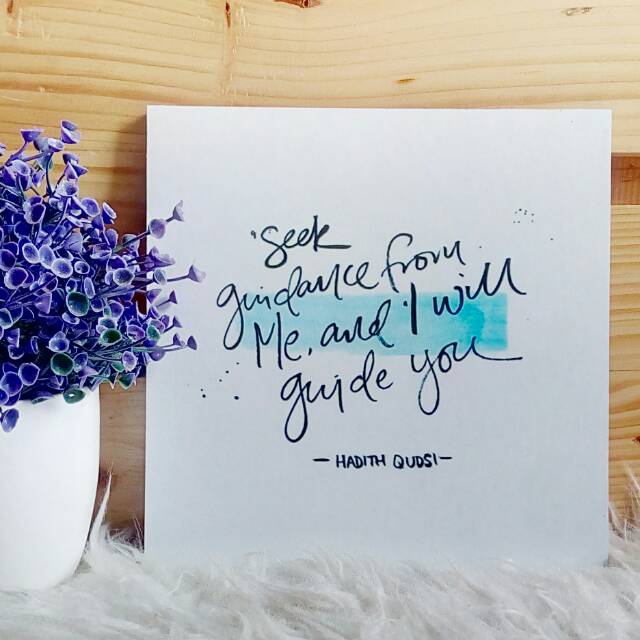 'Seek
guidance from
Me, and I will
guide you
— HADITH QUDSI —